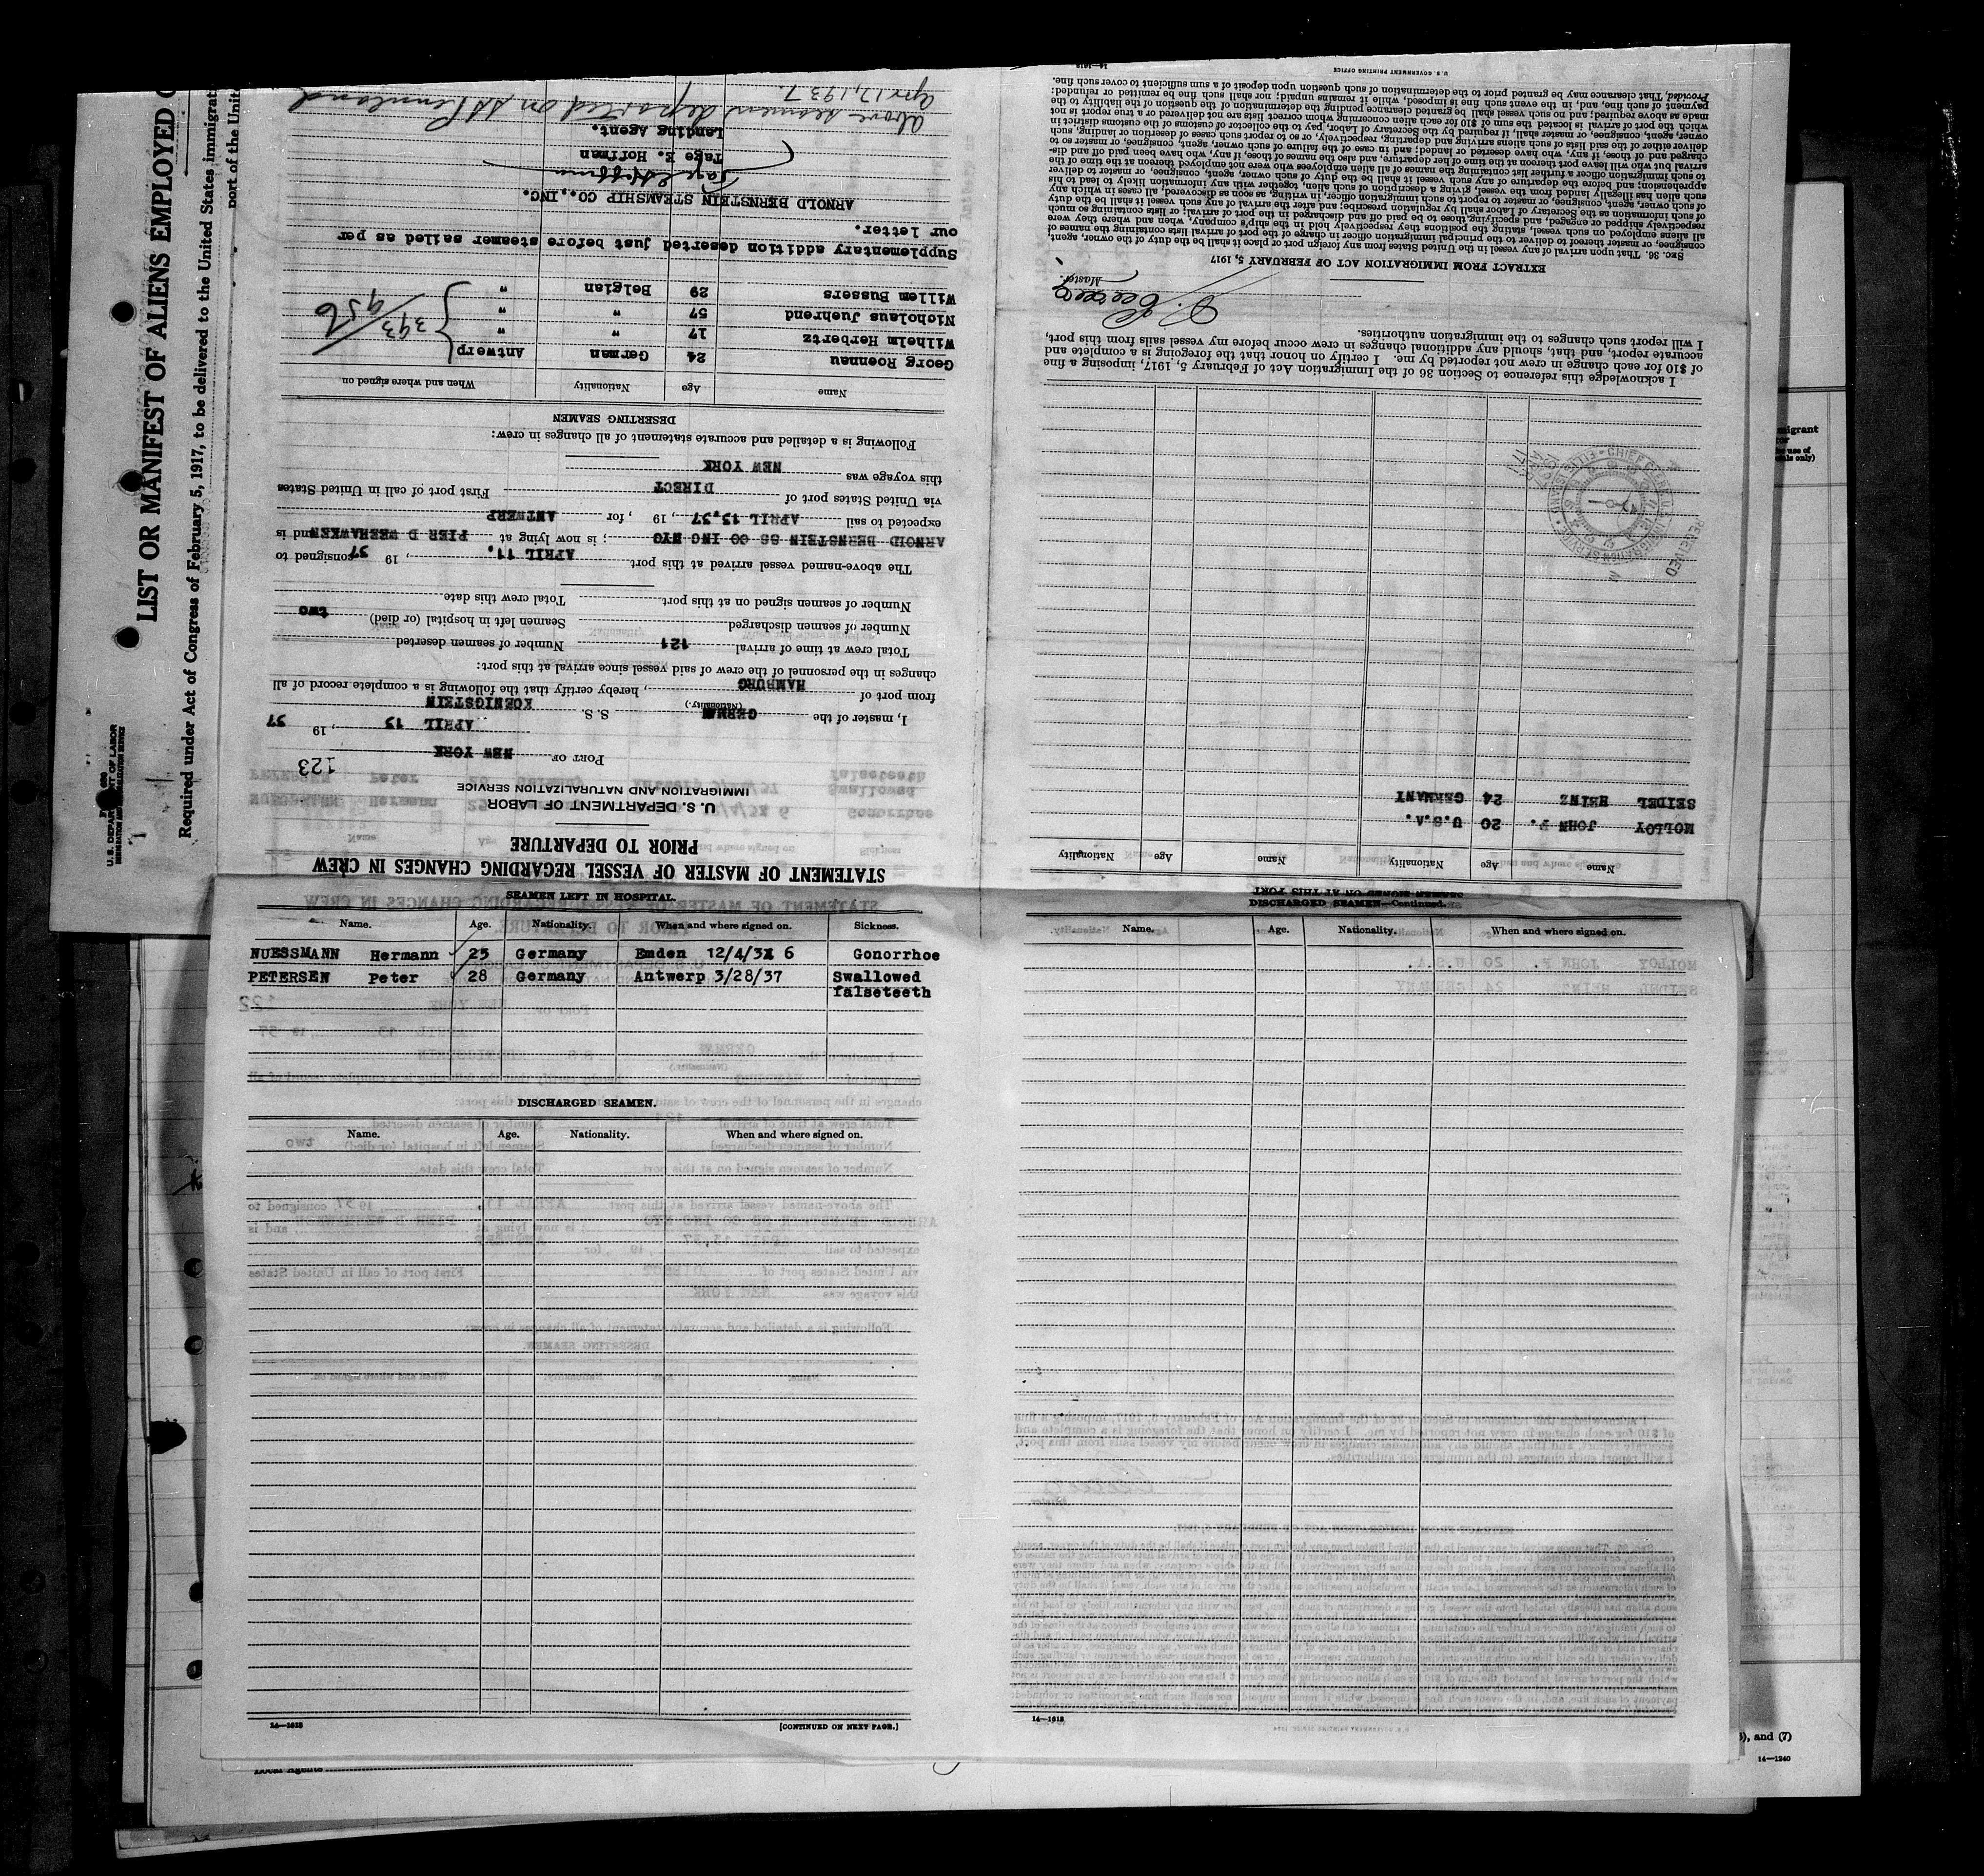 LIST OR MANIFEST OF ALIENS EMPLOYED
Required under Act of Congress of February 5, 1917, to be delivered to the United States immigrat
port of the Unit
U.S. DEPARTMENT OF LABOR
IMMIGRATION AND NATURALIZATION SERVICE
STATEMENT OF MASTER OF VESSEL REGARDING CHANGES IN CREW
PRIOR TO DEPARTURE
U. S. DEPARTMENT OF LABOR
IMMIGRATION AND NATURALIZATION SERVICE
123
PORT OF NEW YORK
APRIL 13, 19 37
I, master of the GERMAN S. S. KOENIGSTEIN
(Nationality.)
from port of HAMBURG, hereby certify that the following is a complete record of all
changes in the personnel of the crew of said vessel since arrival at this port:
Total crew at time of arrival 121 Number of seamen deserted
Number of seamen discharged Seamen left in hospital (or died) two
Number of seamen signed on at this port Total crew this date
The above-named vessel arrived at this port APRIL 11., 19 37 consigned to
ARNOLD BERNSTEIN SS CO INC NYC; is now lying at PIER D WEEHAWKEN and is
expected to sail APRIL 13.37, 19 , for ANTWERP
via United States port of DIRECT First port of call in United States
this voyage was NEW YORK
Following is a detailed and accurate statement of all changes in crew:
DESERTING SEAMEN
Name Age Nationality When and where signed on
Georg Roennau 24 German Antwerp
Wilhelm Herbertz 17 " "
Nicholaus Juehrend 57 " "
Willem Bussers 29 Belgian "
393/956
Supplementary addition deserted just before steamer sailed as per
our letter.
ARNOLD BERNSTEIN STEAMSHIP CO., INC.
Tage E. Hoffman
Tage E. Hoffman
Landing Agent.
above seamen deported on SS Pennland
Apr 17, 1937.
SEAMEN SIGNED ON AT THIS PORT
Name Age Nationality Name Age Nationality
MOLLOY JOHN F. 20 U.S.A.
SEIDEL HEINZ 24 GERMANY
RECEIVED
CHIEF
IMMIGRATION SERVICE
ELLIS ISLAND
I acknowledge this reference to Section 36 of the Immigration Act of February 5, 1917, imposing a fine
of $10 for each change in crew not reported by me. I certify on honor that the foregoing is a complete and
accurate report, and that, should any additional changes in crew occur before my vessel sails from this port,
I will report such changes to the immigration authorities.
Master.
EXTRACT FROM IMMIGRATION ACT OF FEBRUARY 5, 1917
SEC. 36. That upon arrival of any vessel in the United States from any foreign port or place it shall be the duty of the owner, agent,
consignee, or master thereof to deliver to the principal immigration officer in charge of the port of arrival lists containing the names of
all aliens employed on such vessel, stating the positions they respectively hold in the ship's company, when and where they were
respectively shipped or engaged, and specifying those to be paid off and discharged in the port of arrival; or lists containing so much
of such information as the Secretary of Labor shall by regulation prescribe; and after the arrival of any such vessel it shall be the duty
of such owner, agent, consignee, or master to report to such immigration officer, in writing, as soon as discovered, all cases in which any
such alien has illegally landed from the vessel, giving a description of such alien, together with any information likely to lead to his
apprehension; and before the departure of any such vessel it shall be the duty of such owner, agent, consignee, or master to deliver
to such immigration officer a further list containing the names of all alien employees who were not employed thereon at the time of the
arrival but who will leave port thereon at the time of her departure, and also the names of those, if any, who have been paid off and dis-
charged and of those, if any, who have deserted or landed; and in case of the failure of such owner, agent, consignee, or master so to
deliver either of the said lists of such aliens arriving and departing, respectively, or so to report such cases of desertion or landing, such
owner, agent, consignee, or master, shall, if required by the Secretary of Labor, pay to the collector of customs of the customs district in
which the port of arrival is located the sum of $10 for each alien concerning whom correct lists are not delivered or a true report is not
made as above required; and no such vessel shall be granted clearance pending the determination of the question of the liability to the
payment of such fine, and, in the event such fine is imposed, while it remains unpaid; nor shall such fine be remitted or refunded:
Provided, That clearance may be granted prior to the determination of such question upon deposit of a sum sufficient to cover such fine.
14—1618 U. S. GOVERNMENT PRINTING OFFICE
SEAMEN LEFT IN HOSPITAL
Name. Age. Nationality. When and where signed on. Sickness.
NUESSMANN Hermann 25 Germany Emden 12/4/3 6 Gonorrhoe
PETERSEN Peter 28 Germany Antwerp 3/28/37 Swallowed
falseteeth
DISCHARGED SEAMEN.
Name. Age. Nationality. When and where signed on.
14—1618 [CONTINUED ON NEXT PAGE.]
DISCHARGED SEAMEN—Continued.
Name. Age. Nationality. When and where signed on.
14—1618
Local Agents
), and (7)
14—1240